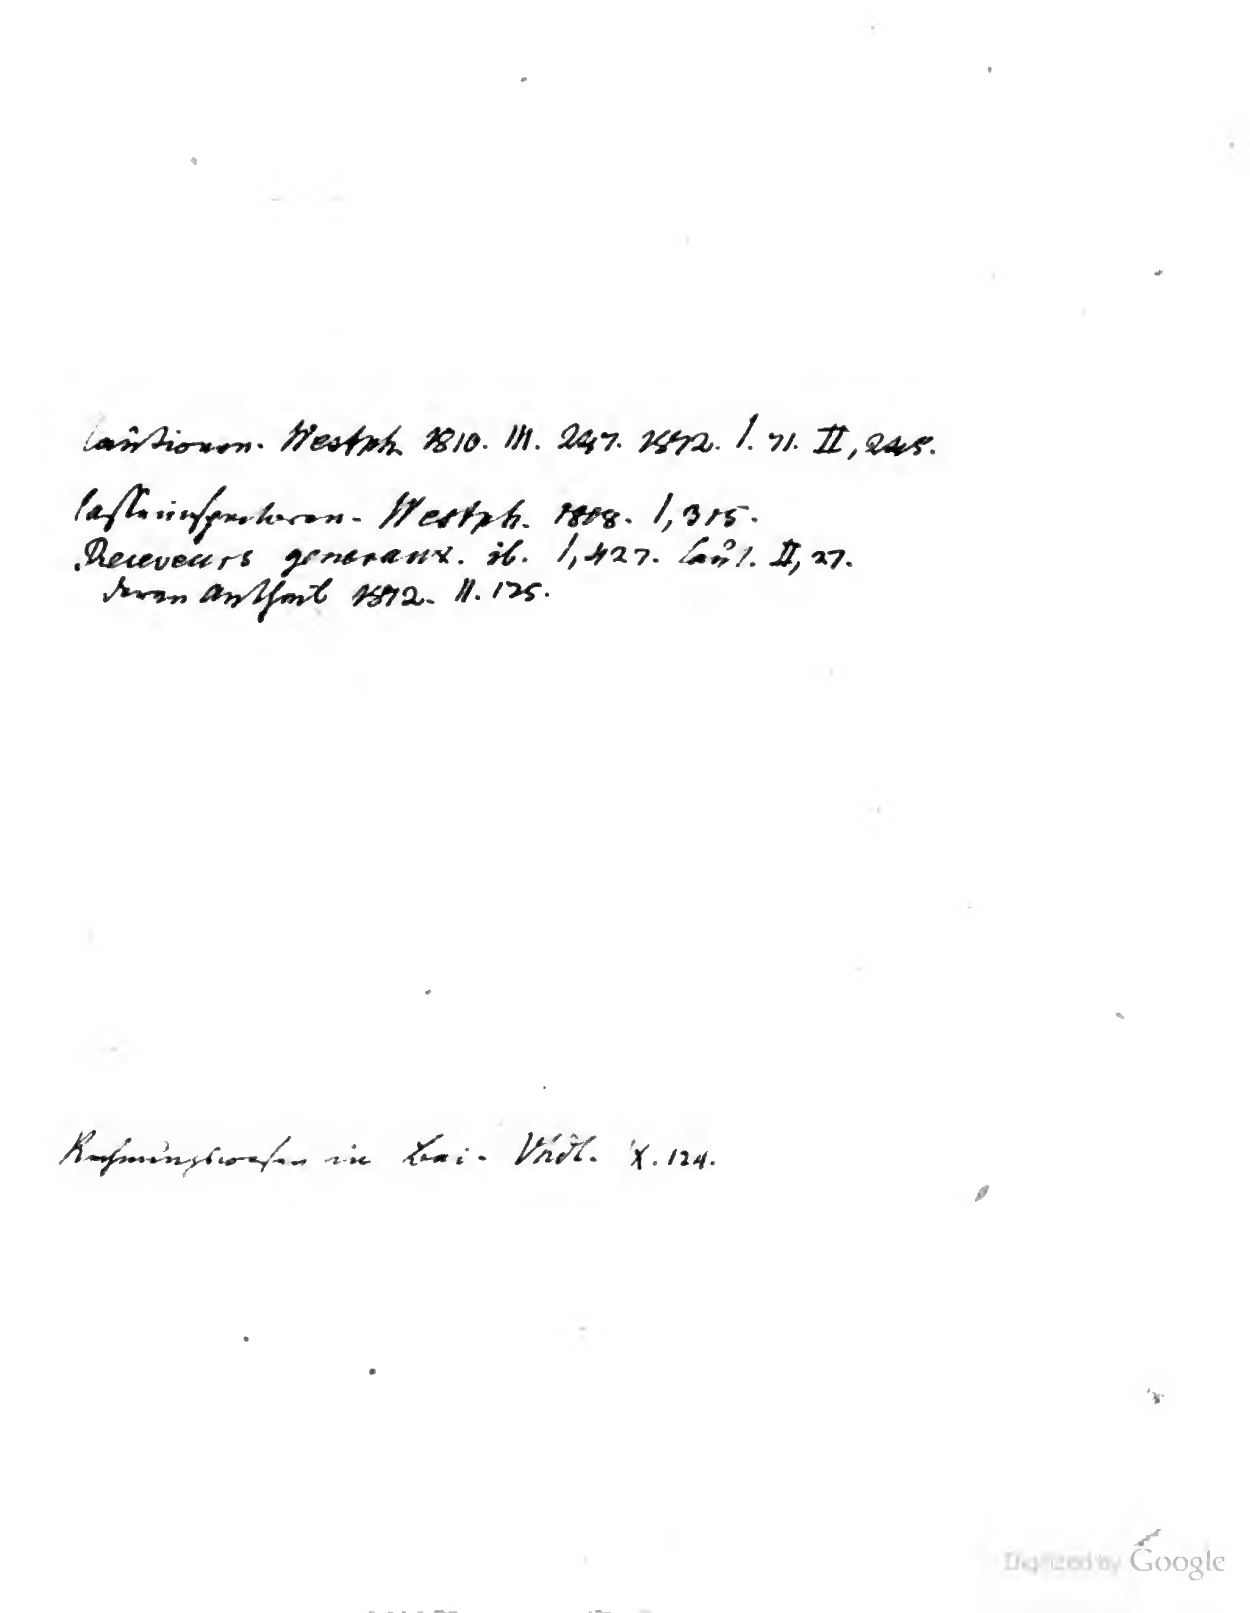 Cautionen. Westph. 1810. III. 247. 1812. I. 71. II, 245.
Casseninspectoren. Westph. 1808. I, 315.
Receveurs generaux. ib. I, 427. Caut. II, 27.
deren Antheil 1812. II. 125.
Rechnungswesen in Bai. X. 124.
Digitized by Google